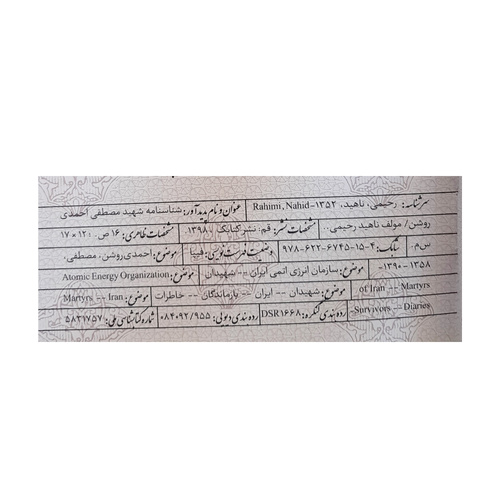 سرشناسه: رحیمی، ناهید، ۱۳۵۲-Rahimi, Nahid عنوان و نام پدیدآور: شناسنامه شهید مصطفی احمدی
روشن/ مولف ناهید رحیمی.. مشخصات نشر: قم: نشر کتابک، ۱۳۹۸. مشخصات ظاهری: ۱۶ ص .: ۱۲ × ۱۷
س‌م. شابک: ۴-۱۵-۶۷۴۵-۶۲۲-۹۷۸ وضعیت فهرست نویسی: فیپا موضوع: احمدی‌روشن، مصطفی،
۱۳۵۸ -۱۳۹۰- موضوع: سازمان انرژی اتمی ایران -- شهیدان Atomic Energy Organization
of Iran -- Martyrs موضوع: شهیدان -- ایران -- بازماندگان -- خاطرات موضوع: Martyrs -- Iran
-Survivors -- Diaries رده بندی کنگره: DSR۱۶۶۸ رده بندی دیویی: ۰۸۴۰۹۲/۹۵۵ شماره کتابشناسی ملی: ۵۸۳۱۷۵۷